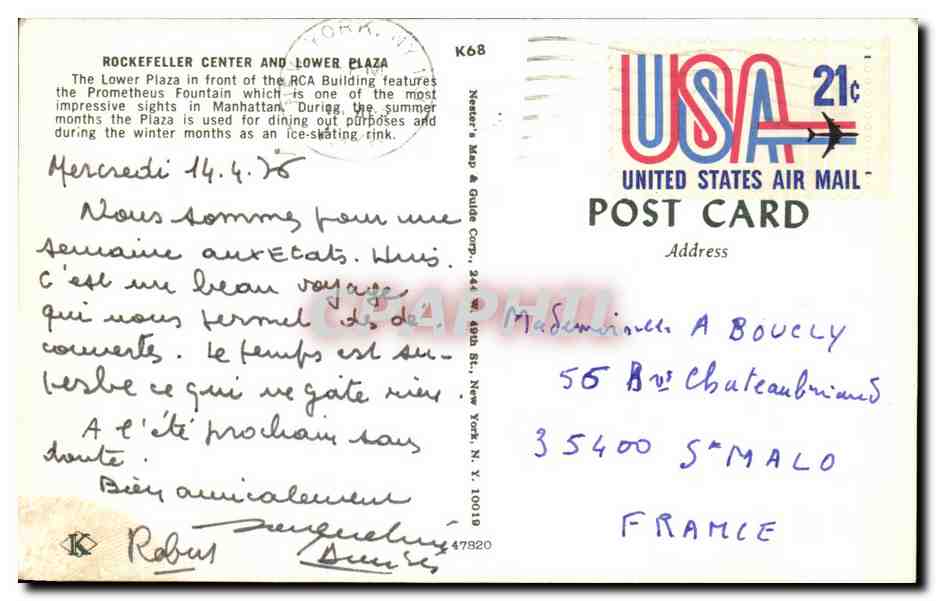 ROCKEFELLER CENTER AND LOWER PLAZA
The Lower Plaza in front of the RCA Building features
the Prometheus Fountain which is one of the most
impressive sights in Manhattan. During the summer
months the Plaza is used for dining out purposes and
during the winter months as an ice-skating rink.
YORK, NY
Mercredi 14.4.76
Nous sommes pour une
semaine aux Etats. Unis.
C'est un beau voyage
qui nous permet des dé-
couvertes. Le temps est su-
perbe ce qui ne gâte rien.
A l'été prochain sans
doute.
Bien amicalement
Jacqueline
K
K68
Nester's Map & Guide Corp., 244 W. 49th St., New York, N. Y. 10019
47820
USA 21¢
UNITED STATES AIR MAIL
POST CARD
Address
Mademoiselle A BOUCLY
56 Chateaubriand
35400 St MALO
FRANCE
CPAPHIL